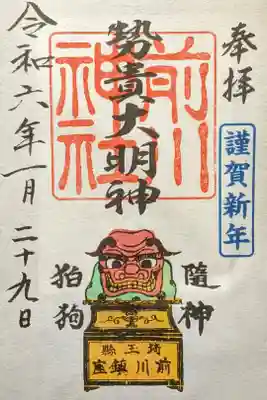 奉拝
謹賀新年
前川
神社
勢貴大明神
令和六年一月二十九日
随神
狛狗
埼玉縣
前川鎮座